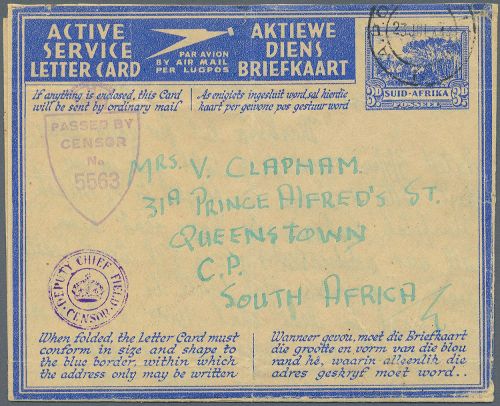 ACTIVE
SERVICE
LETTER CARD
PAR AVION
BY AIR MAIL
PER LUGPOS
AKTIEWE
DIENS
BRIEFKAART
If anything is enclosed, this Card
will be sent by ordinary mail
As enigiets ingesluit word, sal hierdie
kaart per gewone pos gestuur word
23 JUN
3D SUID-AFRIKA 3D
POSSEËL
PASSED BY
CENSOR
No
5563
MRS. V. CLAPHAM.
31A PRINCE ALFRED'S ST.
QUEENSTOWN
C.P.
SOUTH AFRICA
DEPUTY CHIEF FIELD
CENSOR
When folded, the letter Card must
conform in size and shape to
the blue border, within which
the address only may be written
Wanneer gevou, moet die Briefkaart
die grootte en vorm van die blou
rand hê, waarin alleenlik die
adres geskryf moet word..